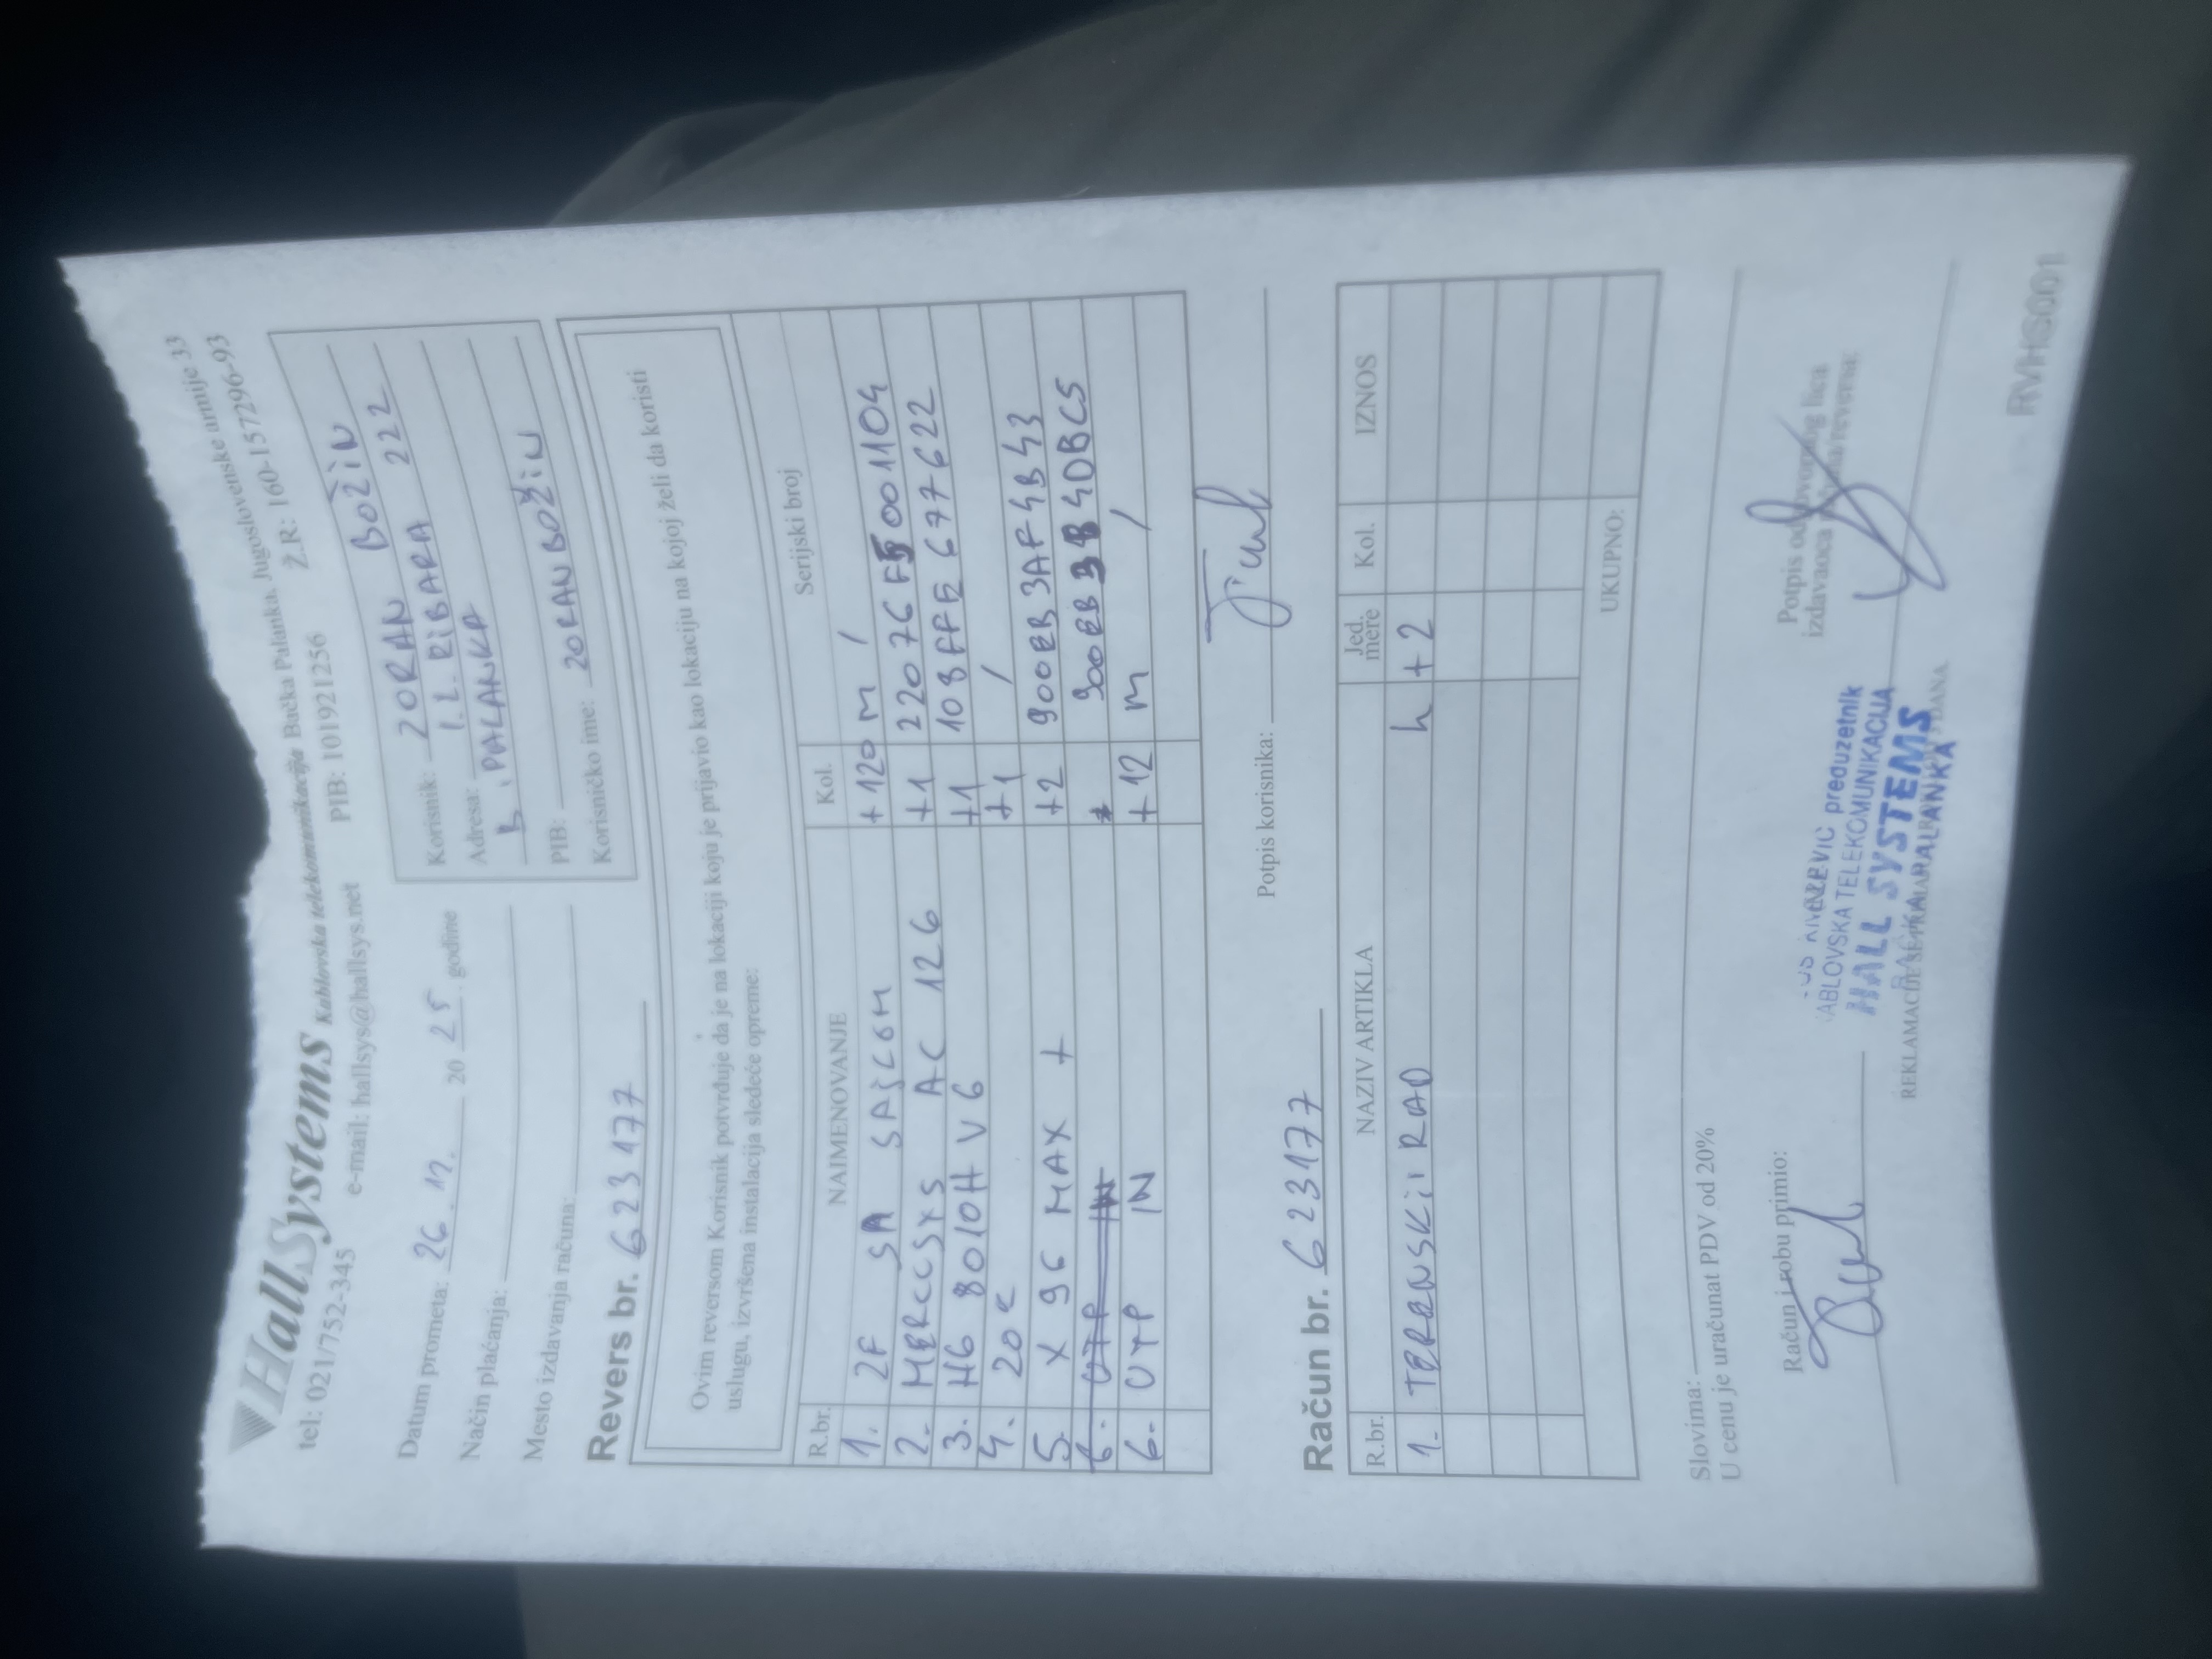 HallSystems Kablovska telekomunikacija Bačka Palanka, Jugoslovenske armije 33
tel: 021/752-345 e-mail: hallsys@hallsys.net PIB: 101921256 Ž.R: 160-157296-93
Datum prometa: 26. 12. 20 25. godine
Način plaćanja:
Mesto izdavanja računa:
Korisnik: ZORAN BOŽIN
Adresa: I.L. RIBARA 222
B. PALANKA
PIB:
Korisničko ime: ZORANBOŽIN
Revers br. 623177
Ovim reversom Korisnik potvrđuje da je na lokaciji koju je prijavio kao lokaciju na kojoj želi da koristi
uslugu, izvršena instalacija sledeće opreme:
R.br. NAIMENOVANJE Kol. Serijski broj
1. 2F SA SAJLOM +120 M /
2. MERCCSYS AC 126 +1 22076FF001104
3. H6 8010H V6 +1 108FFE677622
4. 20c +1 /
5. X 96 MAX + +2 900EB3AF4B43
6. UTP IN 900EB3B40BC5
6. UTP IN +12 M /
Potpis korisnika:
Račun br. 623177
R.br. NAZIV ARTIKLA Jed. mere Kol. IZNOS
1. TERENSKI RAD h +2
UKUPNO:
Slovima:
U cenu je uračunat PDV od 20%
Račun i robu primio:
Potpis odgovornog lica
izdavaoca računa/reversa:
preduzetnik
KABLOVSKA TELEKOMUNIKACIJA
HALL SYSTEMS
BAČKA PALANKA
RVHS001